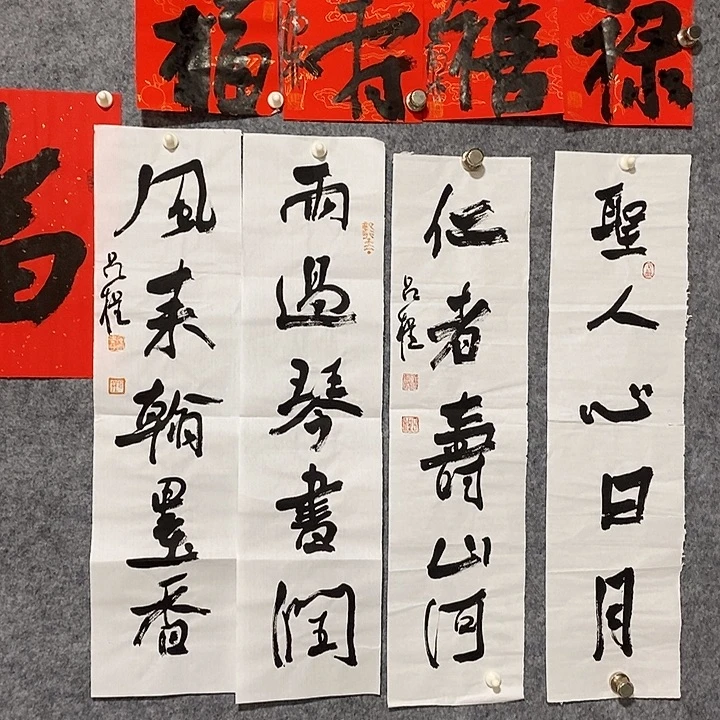 福壽禧禄
聖人心日月
仁者壽山河
呂程
雨過琴書潤
風来翰墨香
呂程